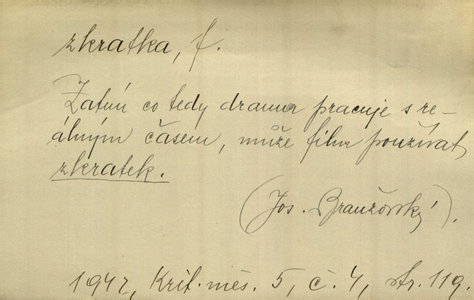 zkratka, f.
Zatím co tedy drama pracuje s re-
álným časem, může film používat
zkratek.
(Jos. Branžovský).
1947, Krit. měs. 5, č. 4, str. 119.